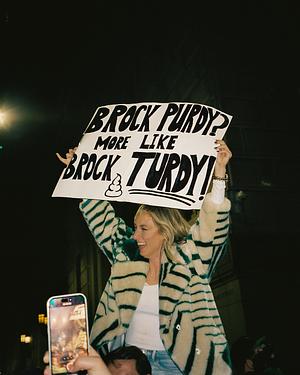 BROCK PURDY?
MORE LIKE
BROCK TURDY!